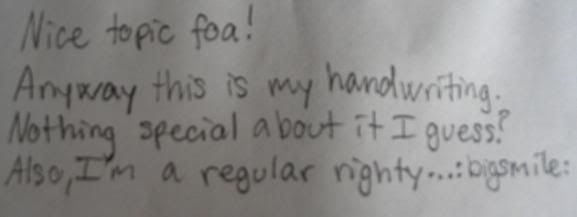 Nice topic foa!
Anyway this is my handwriting.
Nothing special about it I guess?
Also, I'm a regular righty...:bigsmile: